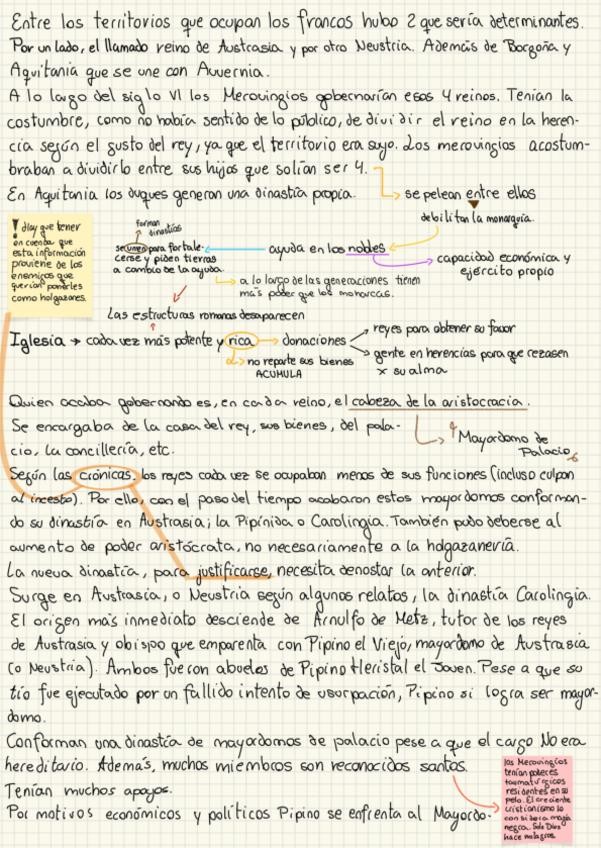 Entre los territorios que ocupan los francos hubo 2 que sería determinantes.
Por un lado, el llamado reino de Austrasia y por otro Neustria. Además de Borgoña y
Aquitania que se une con Auvernia.
A lo largo del siglo VI los Merovingios gobernarían esos 4 reinos. Tenían la
costumbre, como no había sentido de lo público, de dividir el reino en la heren-
cia según el gusto del rey, ya que el territorio era suyo. Los merovingios acostum-
braban a dividirlo entre sus hijos que solían ser 4.
En Aquitania los duques generan una dinastía propia.
se pelean entre ellos
debilitan la monarquía.
! Hay que tener
en cuenta que
esta información
proviene de los
enemigos que
querían ponerles
como holgazanes.
forman
dinastías
se unen para fortale-
cerse y piden tierras
a cambio de la ayuda.
ayuda en los nobles
capacidad económica y
ejército propio
a lo largo de las generaciones tienen
más poder que los monarcas.
Las estructuras romanas desaparecen
Iglesia → cada vez más potente y rica → donaciones
reyes para obtener su favor
gente en herencias para que rezasen
x su alma
no reparte sus bienes
ACUMULA
Quien acaba gobernando es, en cada reino, el cabeza de la aristocracia.
Se encargaba de la casa del rey, sus bienes, del pala-
cio, la cancillería, etc.
Mayordomo de
Palacio
Según las crónicas, los reyes cada vez se ocupaban menos de sus funciones (incluso culpan
al incesto). Por ello, con el paso del tiempo acabaron estos mayordomos conforman-
do su dinastía en Austrasia; la Pipínida o Carolingia. También pudo deberse al
aumento de poder aristócrata, no necesariamente a la holgazanería.
La nueva dinastía, para justificarse, necesita denostar la anterior.
Surge en Austrasia, o Neustria según algunos relatos, la dinastía Carolingia.
El origen más inmediato desciende de Arnulfo de Metz, tutor de los reyes
de Austrasia y obispo que emparenta con Pipino el Viejo, mayordomo de Austrasia
(o Neustria). Ambos fueron abuelos de Pipino Heristal el Joven. Pese a que su
tío fue ejecutado por un fallido intento de usurpación, Pipino si logra ser mayor-
domo.
Conforman una dinastía de mayordomos de palacio pese a que el cargo NO era
hereditario. Además, muchos miembros son reconocidos santos.
Tenían muchos apoyos.
Por motivos económicos y políticos Pipino se enfrenta al Mayordo-
los Merovingios
tenían poderes
taumatúrgicos
residentes en su
pelo. El creciente
cristianismo lo
considera magia
negra. Solo Dios
hace milagros.